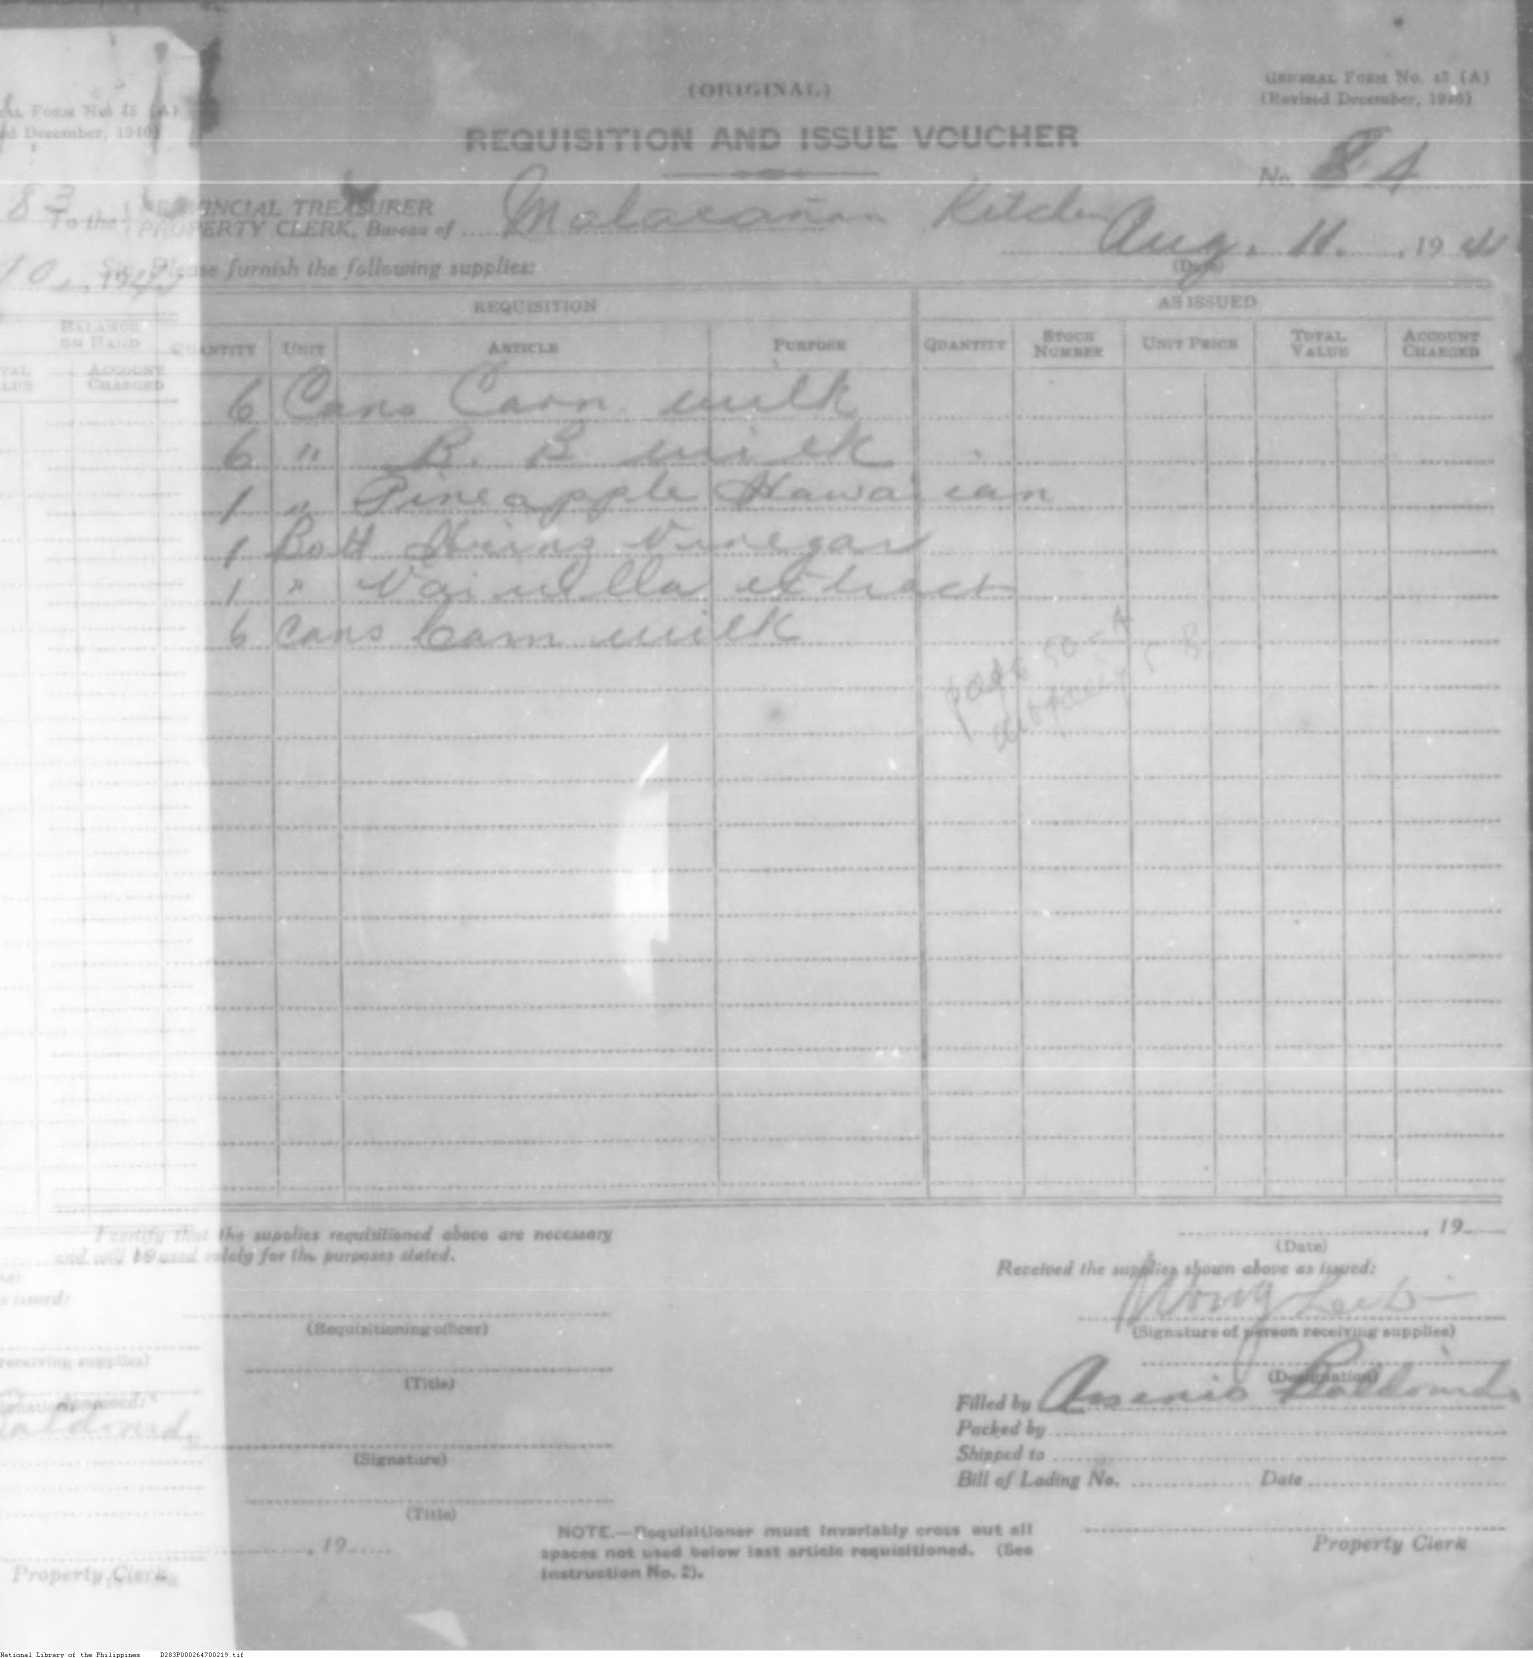 (ORIGINAL)
GENERAL FORM No. 45 (A)
(Revised December, 1940)
REQUISITION AND ISSUE VOUCHER
No. 84
To the PROVINCIAL TREASURER
PROPERTY CLERK, Bureau of Malacañan Kitchen
Aug. 11, 194
(Date)
Sir: Please furnish the following supplies:
REQUISITION AS ISSUED
QUANTITY UNIT ARTICLE PURPOSE QUANTITY STOCK NUMBER UNIT PRICE TOTAL VALUE ACCOUNT CHARGED
6 Cans Carn. milk
6 " B. B milk
1 " Pineapple Hawaiian
1 Bott Heinz Vinegar
1 " Vainilla extract
6 cans Carn milk
page 50-A
I certify that the supplies requisitioned above are necessary
and will be used solely for the purposes stated.
, 19
(Date)
Received the supplies shown above as issued:
(Requisitioning officer)
Wong
(Signature of person receiving supplies)
(Title)
(Designation)
Filled by Arsenio Baldonido
Packed by
(Signature)
Shipped to
Bill of Lading No. Date
(Title)
, 19
NOTE.—Requisitioner must invariably cross out all
spaces not used below last article requisitioned. (See
Instruction No. 2).
Property Clerk
83
BALANCE ON HAND
ACCOUNT CHARGED
receiving supplies)
Property Clerk
National Library of the Philippines D283P000264700219.tif